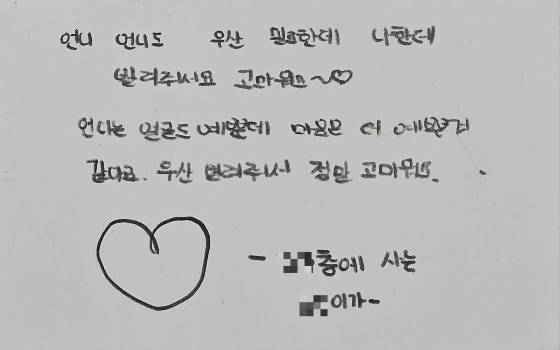 언니 언니도 우산 필요한데 나한테
빌려주셔서 고마워요~♡
언니는 얼굴도 예쁜데 마음은 더 예쁜거
같아요. 우산 빌려주셔서 정말 고마워요.
- 층에 사는
이가-